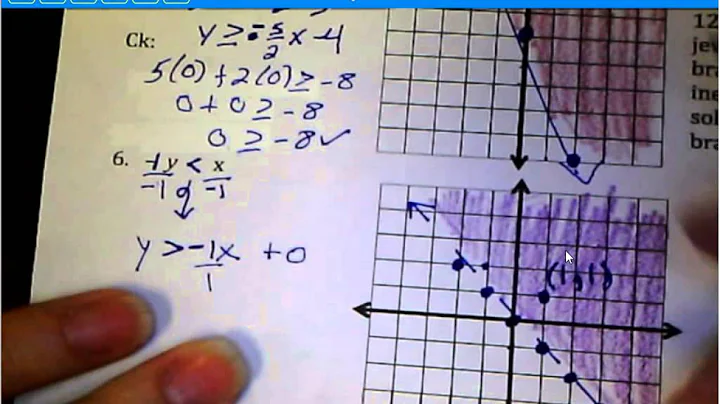 Ck: y ≥ -5/2 x -4
5(0) + 2(0) ≥ -8
0 + 0 ≥ -8
0 ≥ -8 ✓
6. -1y < x
-1 -1
y > -1x + 0
1
(1,1)
12
jew
bra
ine
sol
bra